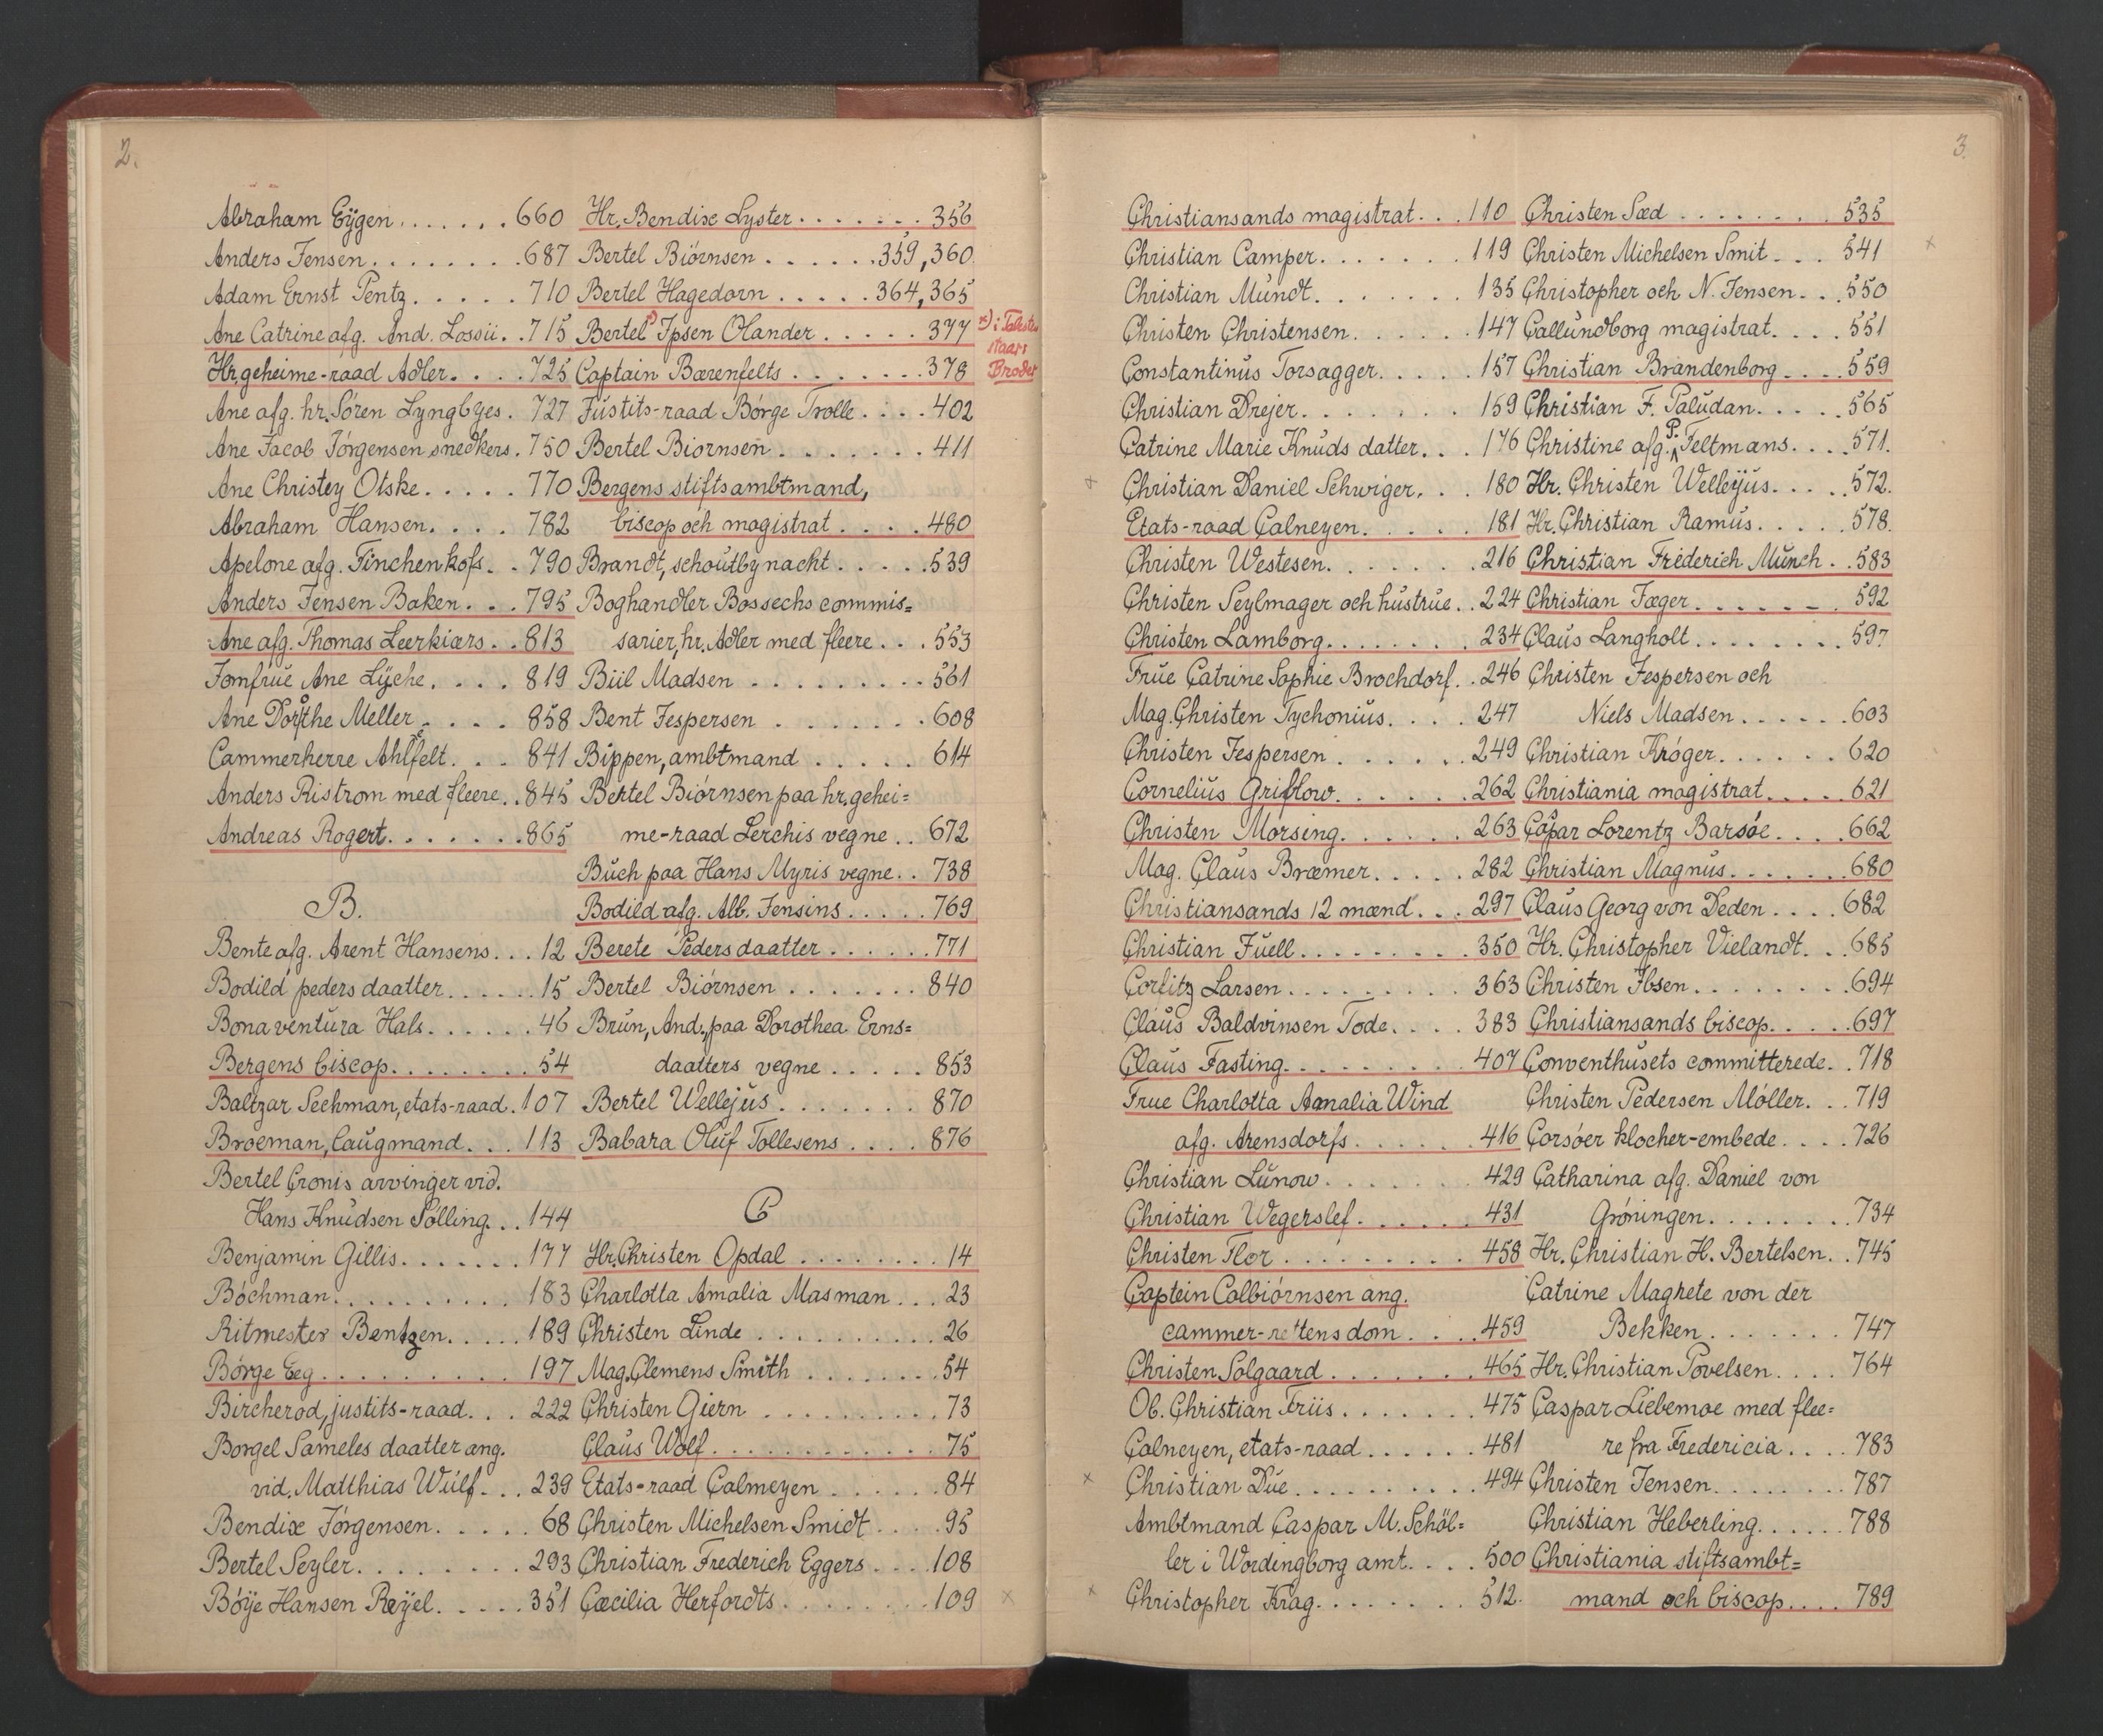 2.
Abraham Eÿgen . . . . . . 660
Anders Jensen . . . . . . . . 687
Adam Ernst Pentz . . . . . 710
Ane Catrine afg. And. Lossii . . 715
Hr. geheime-raad Adler . . . . 725
Ane afg. hr. Sören Lyngbyes . 727
Ane Jacob Jörgensen snedkers . 750
Ane Christey Otske . . . . . 770
Abraham Hansen . . . . 782
Apelone afg. Finchenhofs . . 790
Anders Jensen Baken . . . 795
Ane afg. Thomas Leerkiærs . . 813
Jomfrue Ane Lÿche . . . . 819
Ane Dorothe Meller . . . . 858
Cammerherre Ahlefelt . . . 841
Anders Ristrom med fleere . . 845
Andreas Rogert . . . . . . . 865
B.
Bente afg. Arent Hansens . . . 12
Bodild peders daatter . . . . . . 15
Bonaventura Hals . . . . . . 46
Bergens biscop . . . . . . . . 54
Baltzar Sechman, etats-raad . 107
Broeman, laugmand . . . 113
Bertel Cronis arvinger vid.
Hans Knudsen Sölling . . 144
Benjamin Gillis . . . . . . . 177
Böchman . . . . . . . . . . 183
Ritmester Bentzen . . . . . 189
Börge Eeg . . . . . . . . . . 197
Bircherod, justits-raad . . . 222
Borgel Sameles daatter ang.
vid. Matthias Wülf . . . 239
Bendix Jörgensen . . . . . 68
Bertel Seyler . . . . . . . . . 293
Böÿe Hansen Reÿel . . . . . 351
Hr. Bendix Lyster . . . . . . . 356
Bertel Biörnsen . . . . . . 359, 360
Bertel Hagedorn . . . . . 364, 365
Bertel ×) Ipsen Olander . . . . . 377
Captain Bærenfelts . . . . . . . 378
Justits-raad Börge Trolle . . . . 402
Bertel Biornsen . . . . . . . . 411
Bergens stiftsambtmand,
biscop och magistrat . . . . 480
Brandt, schoutbynacht . . . . . 539
Boghandler Bossechs commis=
sarier, hr. Adler med fleere . . . 553
Biil Madsen . . . . . . . . . 561
Bent Jespersen . . . . . . . . 608
Bippen, ambtmand . . . . . 614
Bertel Biörnsen paa hr. gehei=
me-raad Lerchis vegne . . 672
Buch paa Hans Myris vegne . . 738
Bodild afg. Alb. Jensins . . . . . 769
Berete Peders daatter . . . . . . 771
Bertel Biörnsen . . . . . . . 840
Brun, And., paa Dorothea Erns=
daatters vegne . . . . . 853
Bertel Wellejus . . . . . . . 870
Babara Oluf Tollesens . . . . 876
C
Hr. Christen Opdal . . . . . . . . 14
Charlotta Amalia Masman . . . 23
Christen Linde . . . . . . . . . . 26
Mag. Clemens Smith . . . . . . . . 54
Christen Giern . . . . . . . . . . 73
Claus Wolf . . . . . . . . . . . . 75
Etats-raad Calmeyen . . . . . . 84
Christen Michelsen Smidt . . . . 95
Christian Frederich Eggers . . . . 108
Cæcilia Herfordts . . . . . . . . . 109
×
staar:
Broder
3.
Christiansands magistrat . . . 110
Christian Camper . . . . . . . 119
Christian Mundt . . . . . . . 135
Christen Christensen . . . . . . 147
Constantinus Torsagger . . . . . 157
Christian Drejer . . . . . . . 159
Catrine Marie Knuds datter . . . 176
× Christian Daniel Schwiger . . . 180
Etats-raad Calneyen . . . . . . 181
Christen Westesen . . . . . . . 216
Christen Seylmager och hustrue . . 224
Christen Lamborg . . . . . . . . 234
Frue Catrine Sophie Brochdorf . . 246
Mag. Christen Tychonius . . . . 247
Christen Jespersen . . . . . . 249
Cornelius Griflow . . . . . . . 262
Christen Morsing . . . . . . . 263
Mag. Claus Bræmer . . . . . 282
Christiansands 12 mænd . . . 297
Christian Juell . . . . . . . . . 350
Corfitz Larsen . . . . . . . . . 363
Claus Baldvinsen Tode . . . . 383
Claus Fasting . . . . . . . . . 407
Frue Charlotta Amalia Wind
afg. Arensdorfs . . . . . . 416
Christian Lunow . . . . . . . 429
Christian Wegerslef . . . . . . 431
Christen Flor . . . . . . . . . . 458
Captein Colbiörnsen ang.
cammer-rettens dom . . . . 459
Christen Solgaard . . . . . . . 465
Ob. Christian Friis . . . . . . . 475
Calneyen, etats-raad . . . . . . 481
× Christian Due . . . . . . . . . . 494
Ambtmand Caspar M. Schöl=
ler i Wordingborg amt . . . . 500
× Christopher Krag . . . . . . . . 512.
Christen Sæd . . . . . . . . . 535
Christen Michelsen Smit . . . 541 ×
Christopher och N. Jensen . . . 550
Callundborg magistrat . . . . 551
Christian Brandenborg . . . . 559
Christian F. Paludan . . . . . 565
Christine afg. P. Feltmans . . . . 571.
Hr. Christen Wellejus . . . . . 572.
Hr. Christian Ramus . . . . . 578.
Christian Friderich Munch . . 583
Christian Jæger . . . . . . . 592
Claus Langholt . . . . . . . . 597
Christen Jespersen och
Niels Madsen . . . . . . 603
Christian Kröger . . . . . . 620
Christiania magistrat . . . . . 621
Caspar Lorentz Barsöe . . . . 662
Christian Magnus . . . . . . . 680
Claus Georg von Deden . . . . 682
Hr. Christopher Vielandt . . . 685
Christen Ibsen . . . . . . . . 694
Christiansands biscop . . . . . 697
Conventhusets committerede . 718
Christen Pedersen Möller . . . 719
Corsöer klocher-embede . . . . 726
Catharina afg. Daniel von
Gröningen . . . . . . . . 734
Hr. Christian H. Bertelsen . . 745
Catrine Magrete von der
Bekken . . . . . . . 747
Hr. Christian Povelsen . . . . 764
Caspar Liebemoe med flee=
re fra Fredericia . . . . 783
Christen Jensen . . . . . . . . 787
Christian Heberling . . . . . . 788
Christiania stiftsambt=
mand och biscop . . . . 789